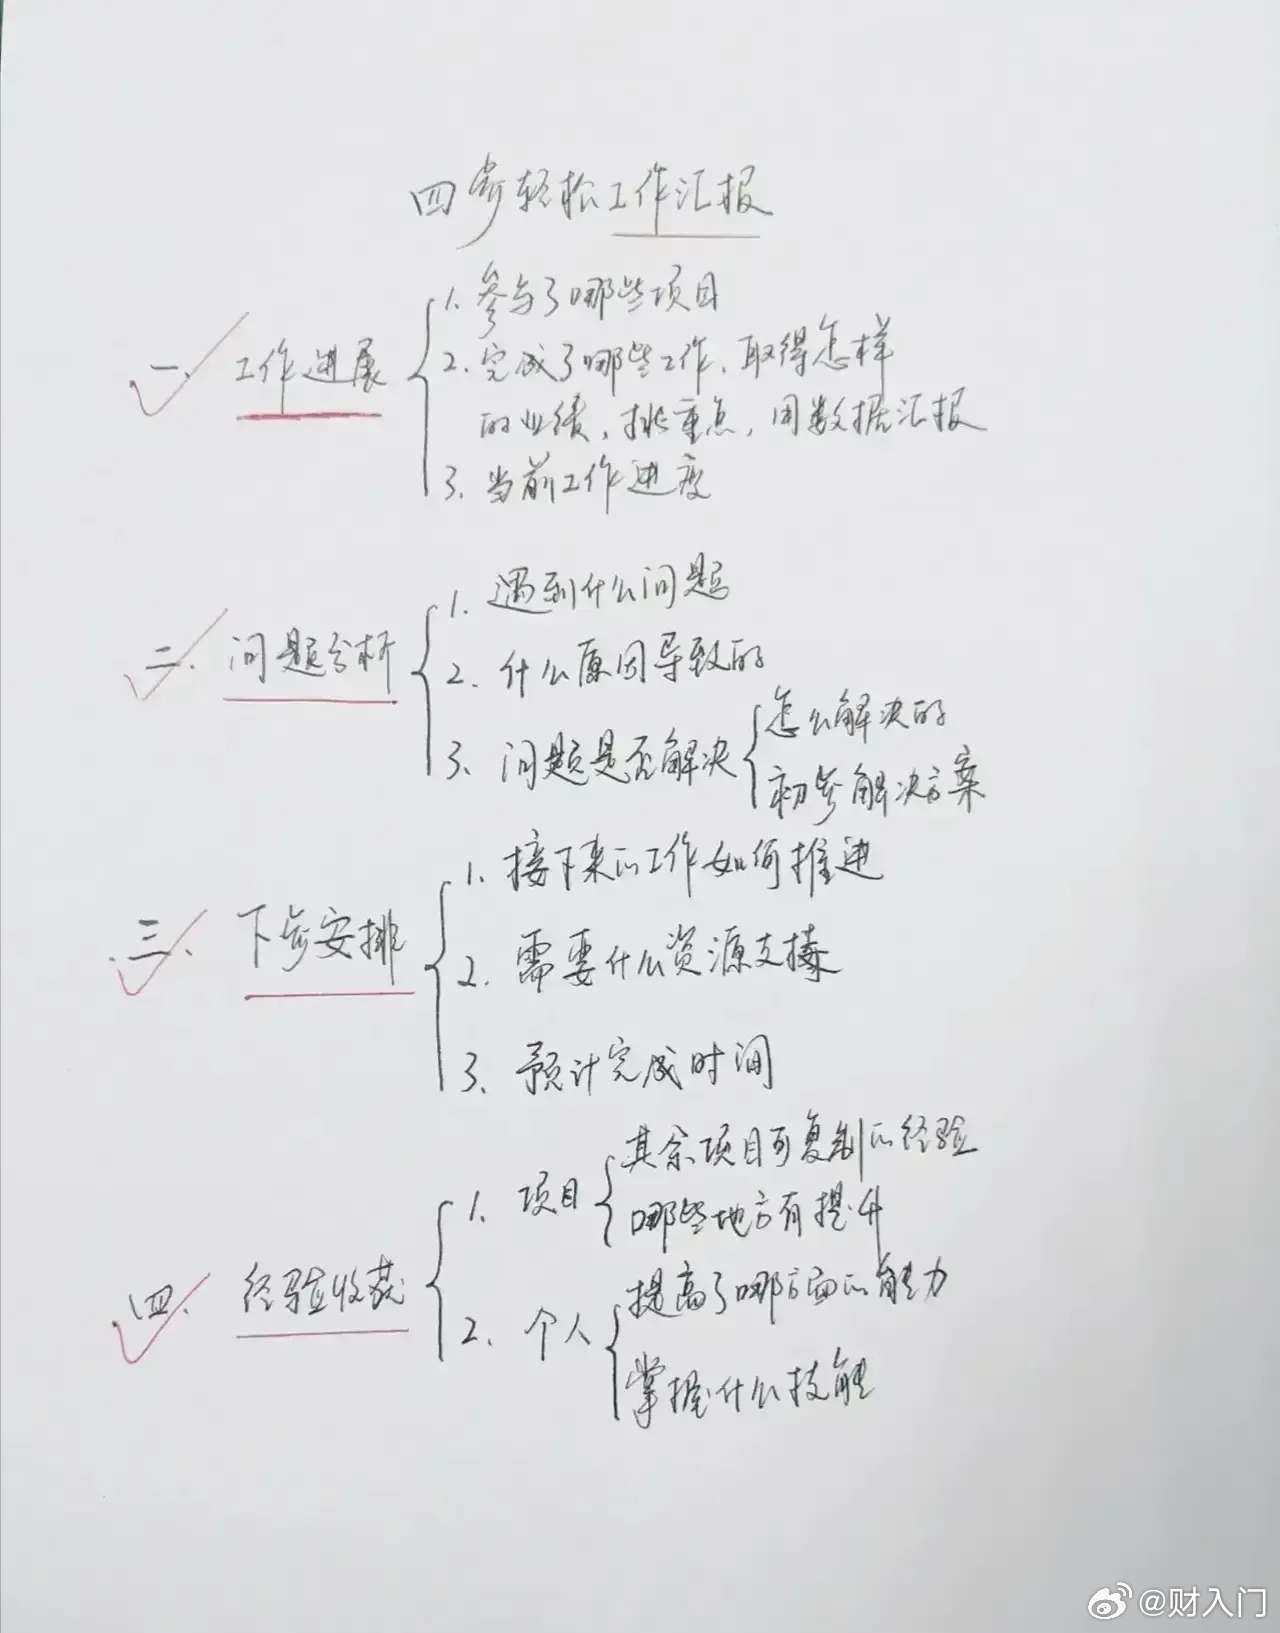 四步轻松工作汇报
一、工作进展
1. 参与了哪些项目
2. 完成了哪些工作、取得怎样
的业绩，挑重点，用数据汇报
3. 当前工作进度
二、问题分析
1. 遇到什么问题
2. 什么原因导致的
3. 问题是否解决
怎么解决的
初步解决方案
三、下步安排
1. 接下来的工作如何推进
2. 需要什么资源支撑
3. 预计完成时间
四、经验收获
1. 项目
其余项目可复制的经验
哪些地方有提升
2. 个人
提高了哪方面的能力
掌握什么技能
@财入门